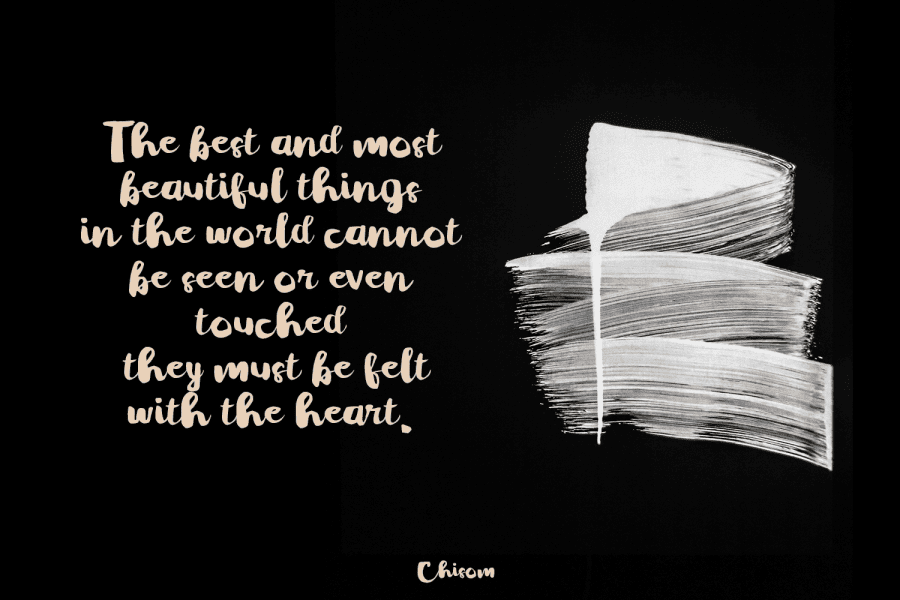 The best and most
beautiful things
in the world cannot
be seen or even
touched
they must be felt
with the heart.
Chisom